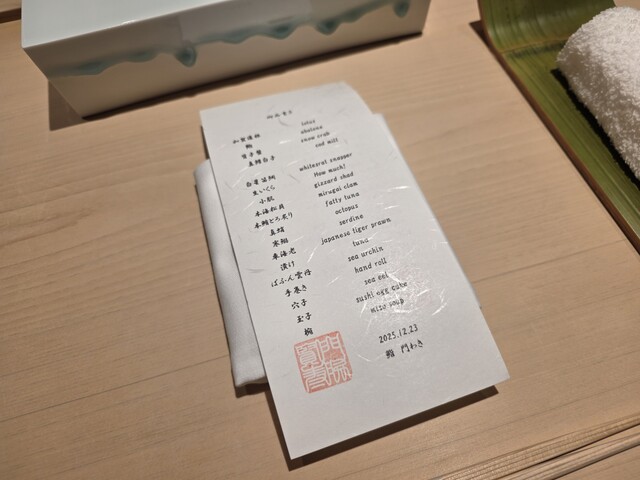 御品書き
加賀蓮根 lotus
鮑 abalone
snow crab
真鱈白子 cod milt
whitearat snapper
生いくら How much!
小肌 gizzard shad
本海松貝 mirugai clam
本鮪とろ炙り fatty tuna
真蛸 octopus
serdine
車海老 japanese tiger prawn
漬け tuna
ばふん雲丹 sea urchin
手巻き hand roll
穴子 sea eel
玉子 sushi egg cake
椀 miso soup
2025.12.23
鮨 門わき